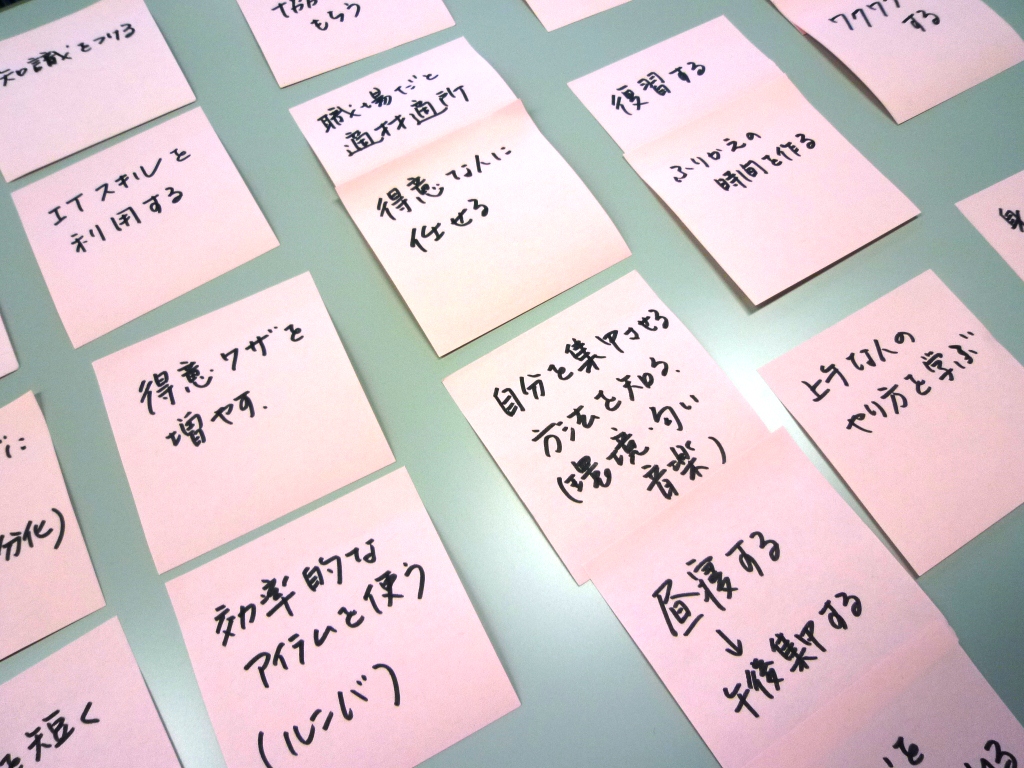 知識をつける
もらう
ワクワク
する
ITスキルを
利用する
職場だと
適材適所
得意な人に
任せる
復習する
ふりかえの
時間を作る
得意ワザを
増やす.
自分を集中させる
方法を知る.
(環境.匂い
音楽)
上手な人の
やり方を学ぶ
分化)
効率的な
アイテムを使う
(ルンバ)
昼寝する
↓
午後集中する
を短く
を